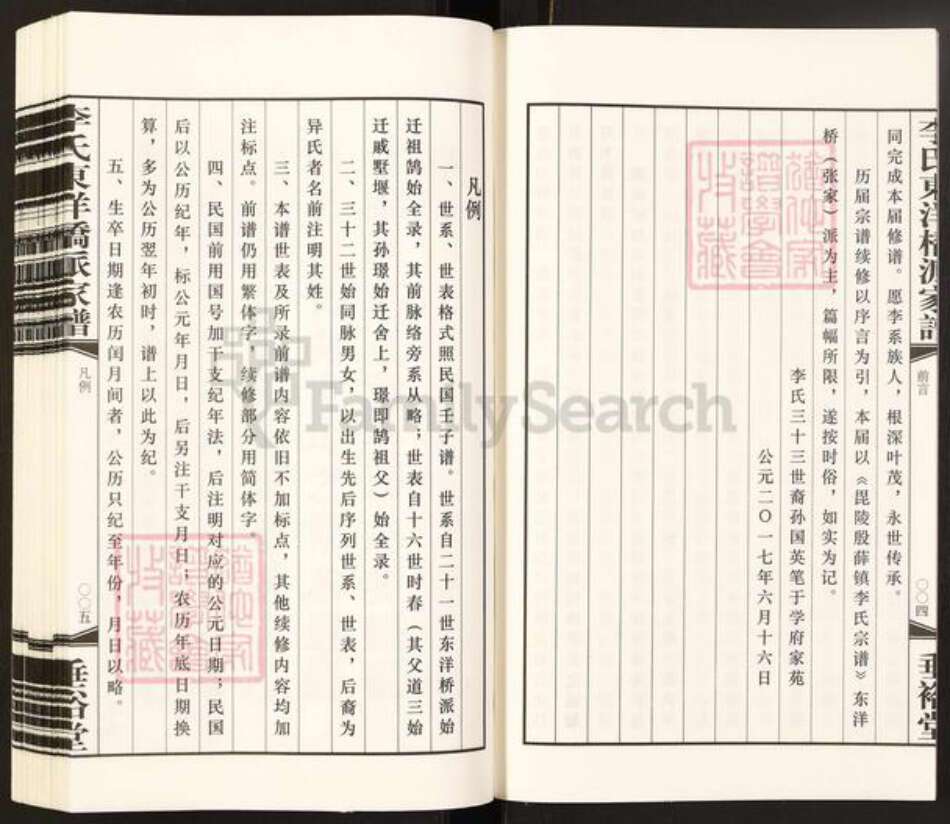 李氏東洋橋派家譜
前言
〇〇四
垂裕堂
同完成本届修谱。愿李系族人，根深叶茂，永世传承。
历届宗谱续修以序言为引，本届以《毘陵殷薛镇李氏宗谱》东洋
桥（张家）派为主，篇幅所限，遂按时俗，如实为记。
李氏三十三世裔孙国英笔于学府家苑
公元二〇一七年六月十六日
凡例
一、世系、世表格式照民国壬子谱。世系自二十一世东洋桥派始
迁祖鹄始全录，其前脉络旁系从略；世表自十六世时春（其父道三始
迁戚墅堰，其孙璟始迁舍上，璟即鹄祖父）始全录。
二、三十二世始同脉男女，以出生先后序列世系、世表，后裔为
异氏者名前注明其姓。
三、本谱世表及所录前谱内容依旧不加标点，其他续修内容均加
注标点。前谱仍用繁体字，续修部分用简体字。
四、民国前用国号加干支纪年法，后注明对应的公元日期；民国
后以公历纪年，标公元年月日，后另注干支月日；农历年底日期换
算，多为公历翌年初时，谱上以此为纪。
五、生卒日期逢农历闰月间者，公历只纪至年份，月日以略。
李氏東洋橋派家譜
凡例
〇〇五
垂裕堂
FamilySearch